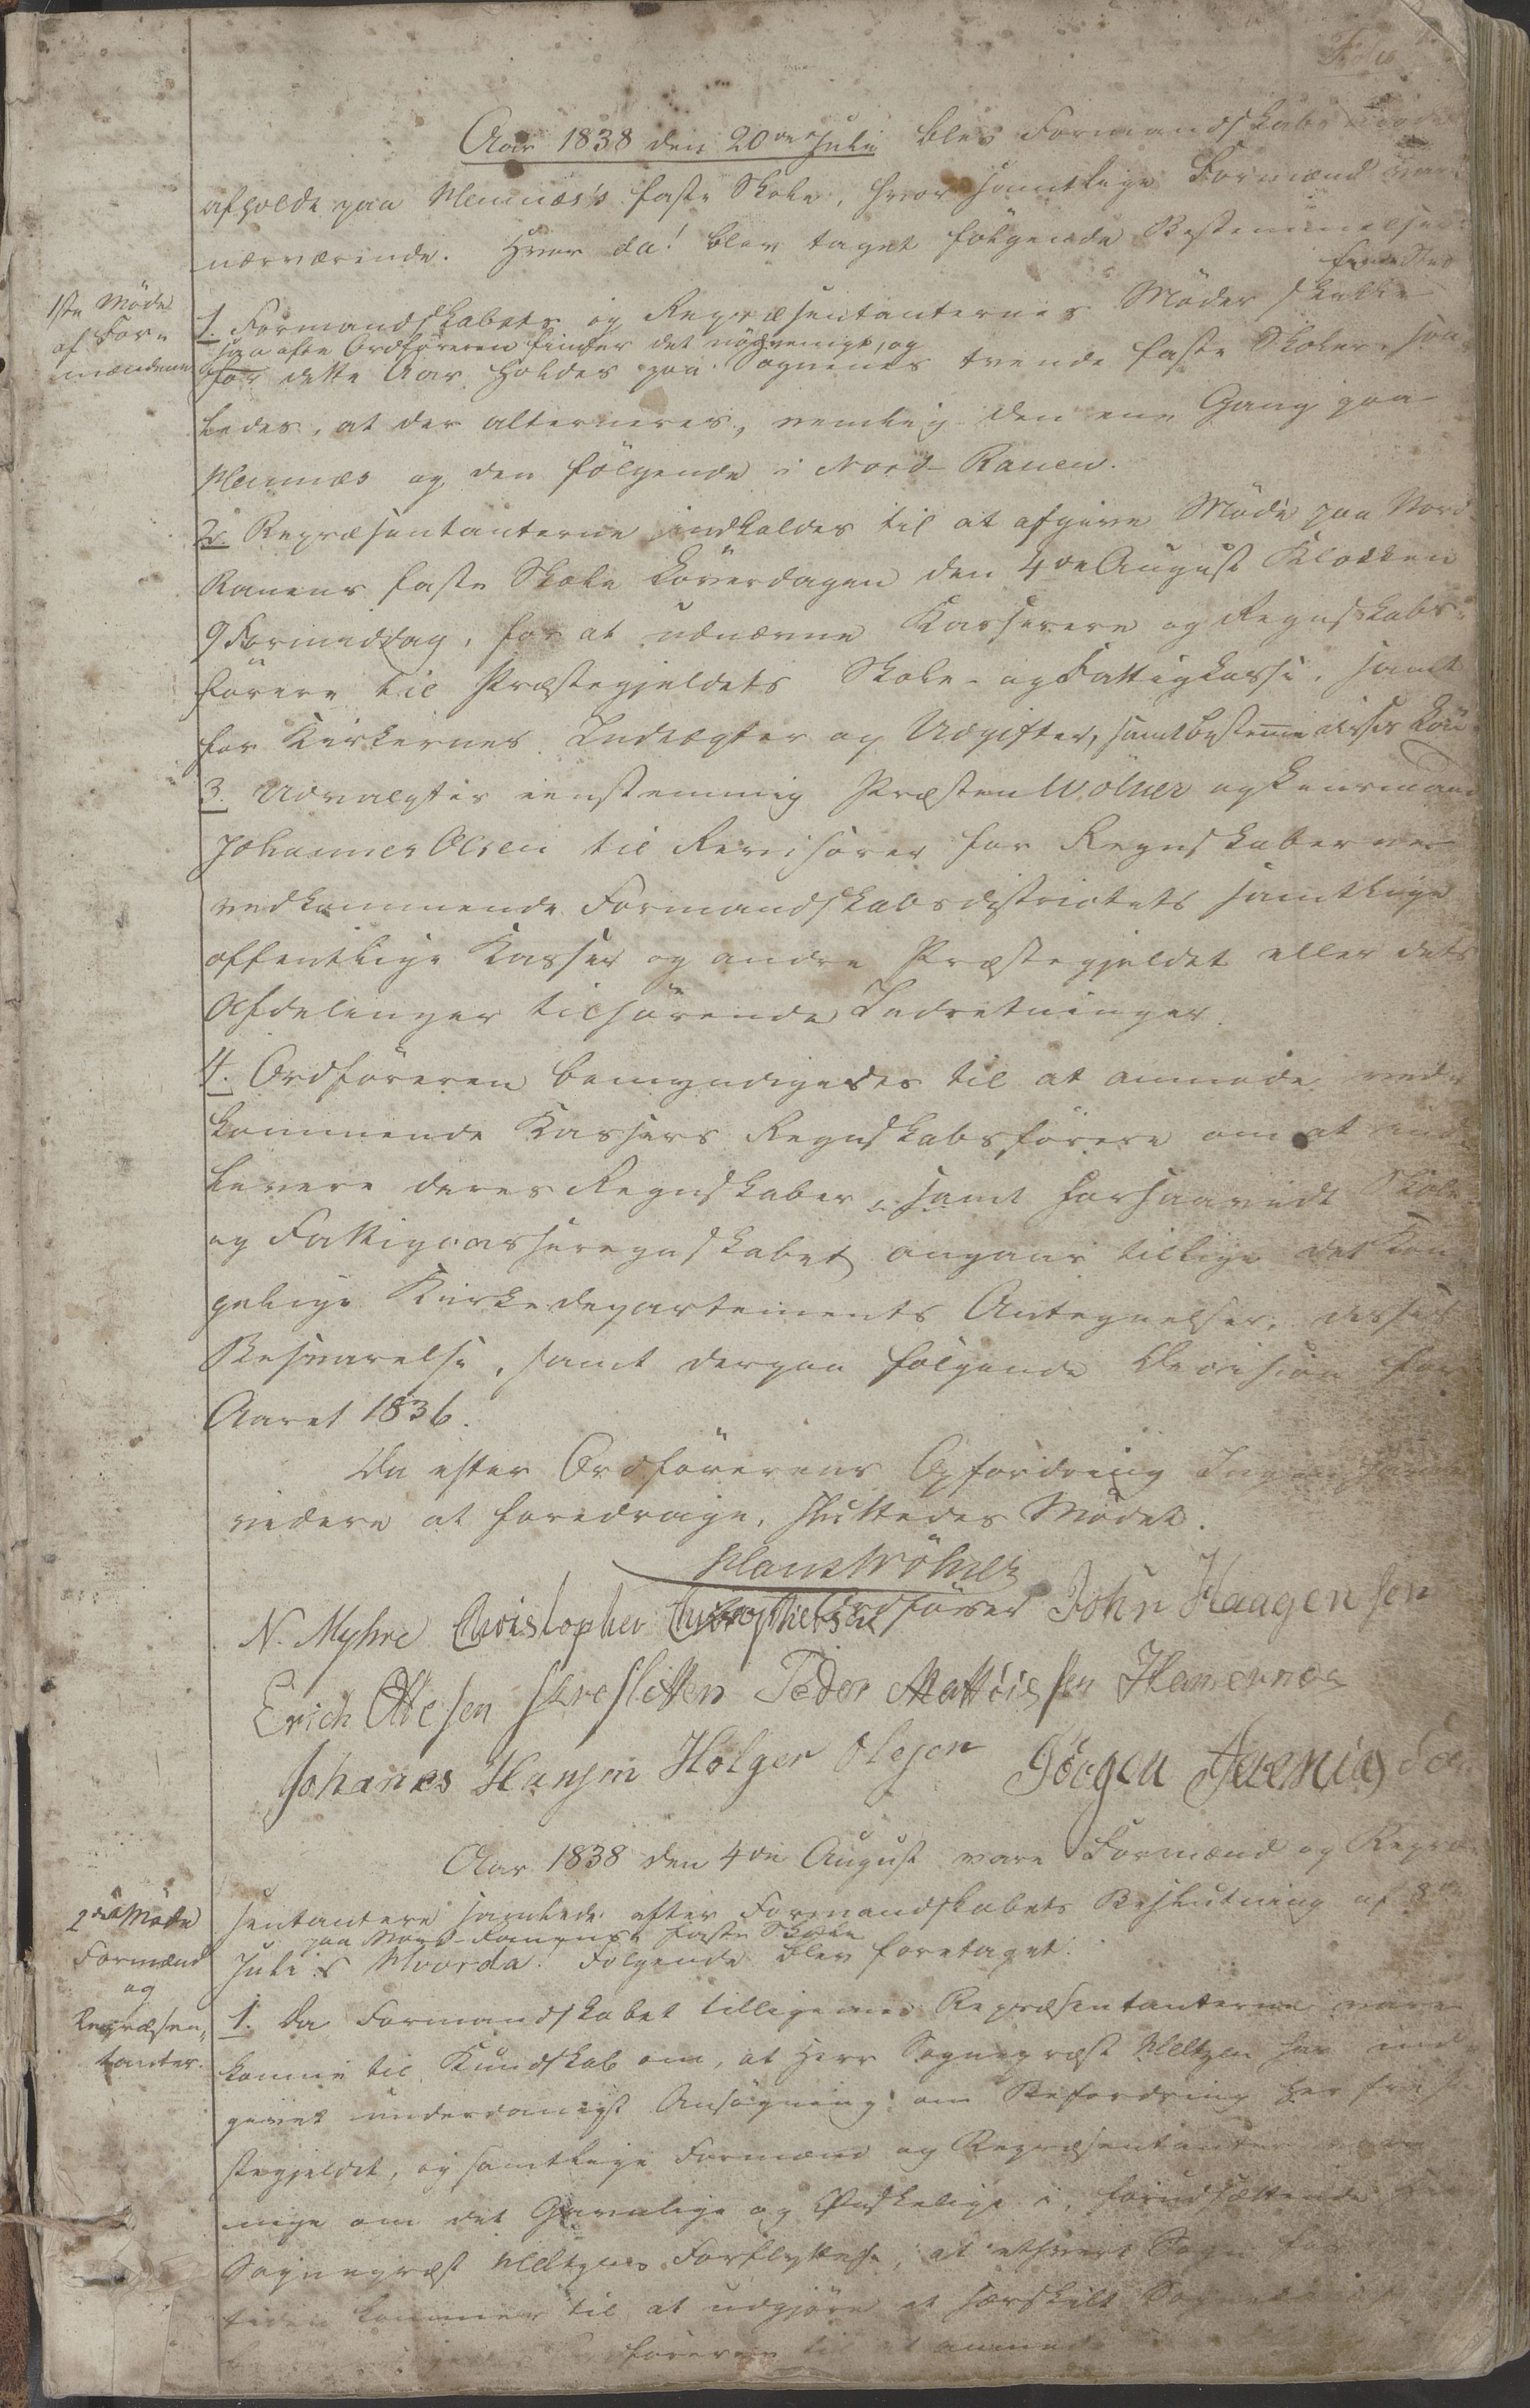 Folio
Aar 1838 den 20de Julii blev Formandskabsmøde
afholdt paa Hemnæs's faste Skole, hvor samtlige Formænd vare
nærværende. Hvor da! blev taget følgende Bestemmelser:
1ste Møde
af For-
mændene
1. Formandskabets og Repræsentanternes Møder skulle finde Sted
saa ofte Ordføreren finder det nødvendigt, og
for dette Aar holdes paa Sognenes tvende faste Skoler, saa-
ledes, at der alterneres, nemlig den ene Gang paa
Hemnæs og den følgende i Nord-Ranen.
2. Repræsentanterne indkaldes til at afgive Møde paa Nord
Ranens faste Skole Løverdagen den 4de August Klokken
9 Formiddag, for at udnævne Kasserere og Regnskabs-
førere til Præstegjeldets Skole- og Fattigkasse, samt
for Kirkernes Indtægter og Udgifter, samt bestemme disses Løn
3. Udvalgtes eenstemmig Præsten Wölner og Lensmand
Johannes Olsen til Revisorer for Regnskaberne
vedkommende Formandskabsdistrictets samtlige
offentlige Kasser og andre Præstegjeldet eller dets
Afdelinger tilhørende Indretninger.
4. Ordføreren bemyndigedes til at anmode ved-
kommende Kassers Regnskabsførere om at ind-
levere deres Regnskaber, samt forsaavidt Skole-
og Fattigcasseregnskabet angaaer tillige det Kon-
gelige Kirkedepartements Antegnelser, disses
Besvarelse, samt derpaa følgende Decision for
Aaret 1836.
Da efter Ordførerens Opfordring Ingen havde
videre at foredrage, sluttedes Mødet.
Hans Wölner
Ordfører
N. Myhre Christopher Christophersen John Haagensen
Erich Ottesen Peder Mattissen Hamernæs
Johanes Hansen Holger Olesen Jörgen Jeremias
Aar 1838 den 4de August vare Formænd og Repræ-
2det Møde
Formænd
og
Repræsen-
tanter.
sentantere samlede efter Formandskabets Beslutning af
paa Nord-Ranens faste Skole
Juli Hvorda! Følgende blev foretaget.
1. Da Formandskabet tilligemed Repræsentanterne vare
komne til Kundskab om, at Herr Sognepræst Heltzen har ind-
givet underdanigst Ansøgning om Befordring her fra
stegjeldet, og samtlige Formænd og Repræsentanter vare
enige om det Gavnlige og Ønskelige i, forudsættende
Sognepræst Heltzens Forflyttelse, at ethvert Sogn for
tiden kommer til at udgjøre et særskilt
føreren til at anmode